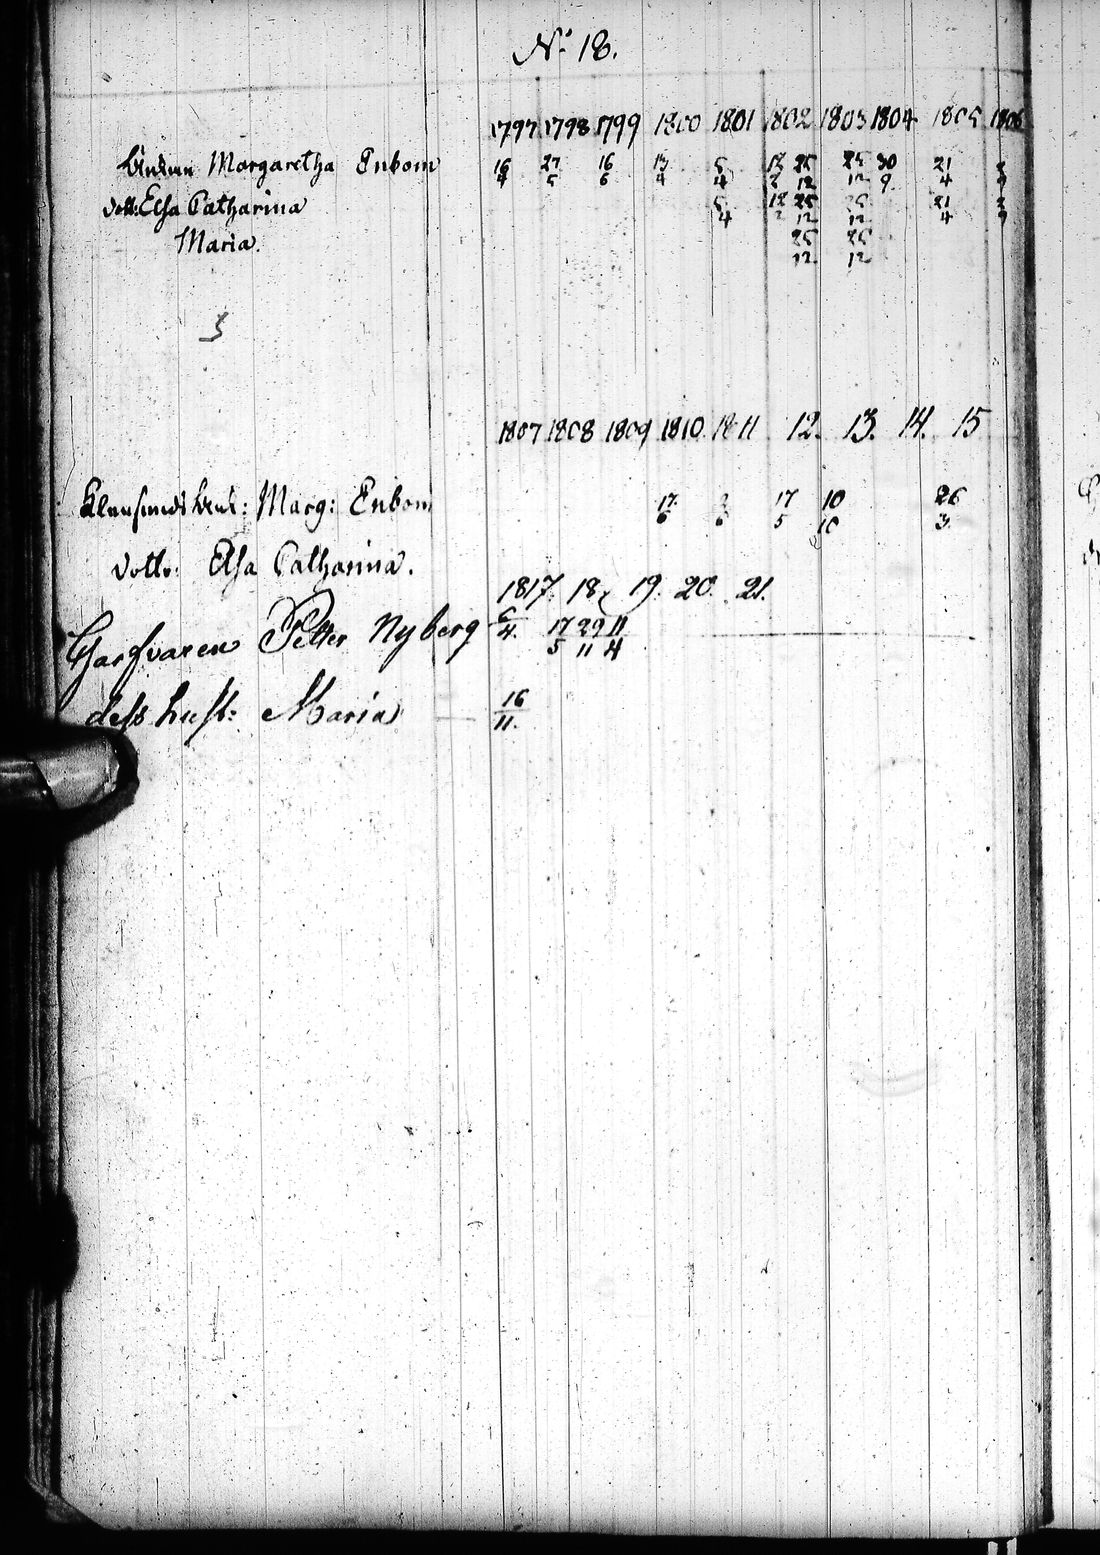 No 18.
1797 1798 1799 1800 1801 1802 1803 1804 1805 1806
Enkan Margaretha Enbom 16/4 27/5 16/6 13/4 5/4 12/2 25/12 25/12 30/9 21/4
dott: Elsa Catharina 5/4 12/2 25/12 25/12 21/4
Maria. 25/12 25/12
1807 1808 1809 1810. 1811 12. 13. 14. 15
Enk: Marg: Enbom 17/6 17/5 10/10 26/3
dottr: Elsa Catharina.
1817. 18. 19. 20. 21.
Garfvaren Petter Nyberg 6/4. 17/5 29/11 11/4
dess hust: Maria 16/11.